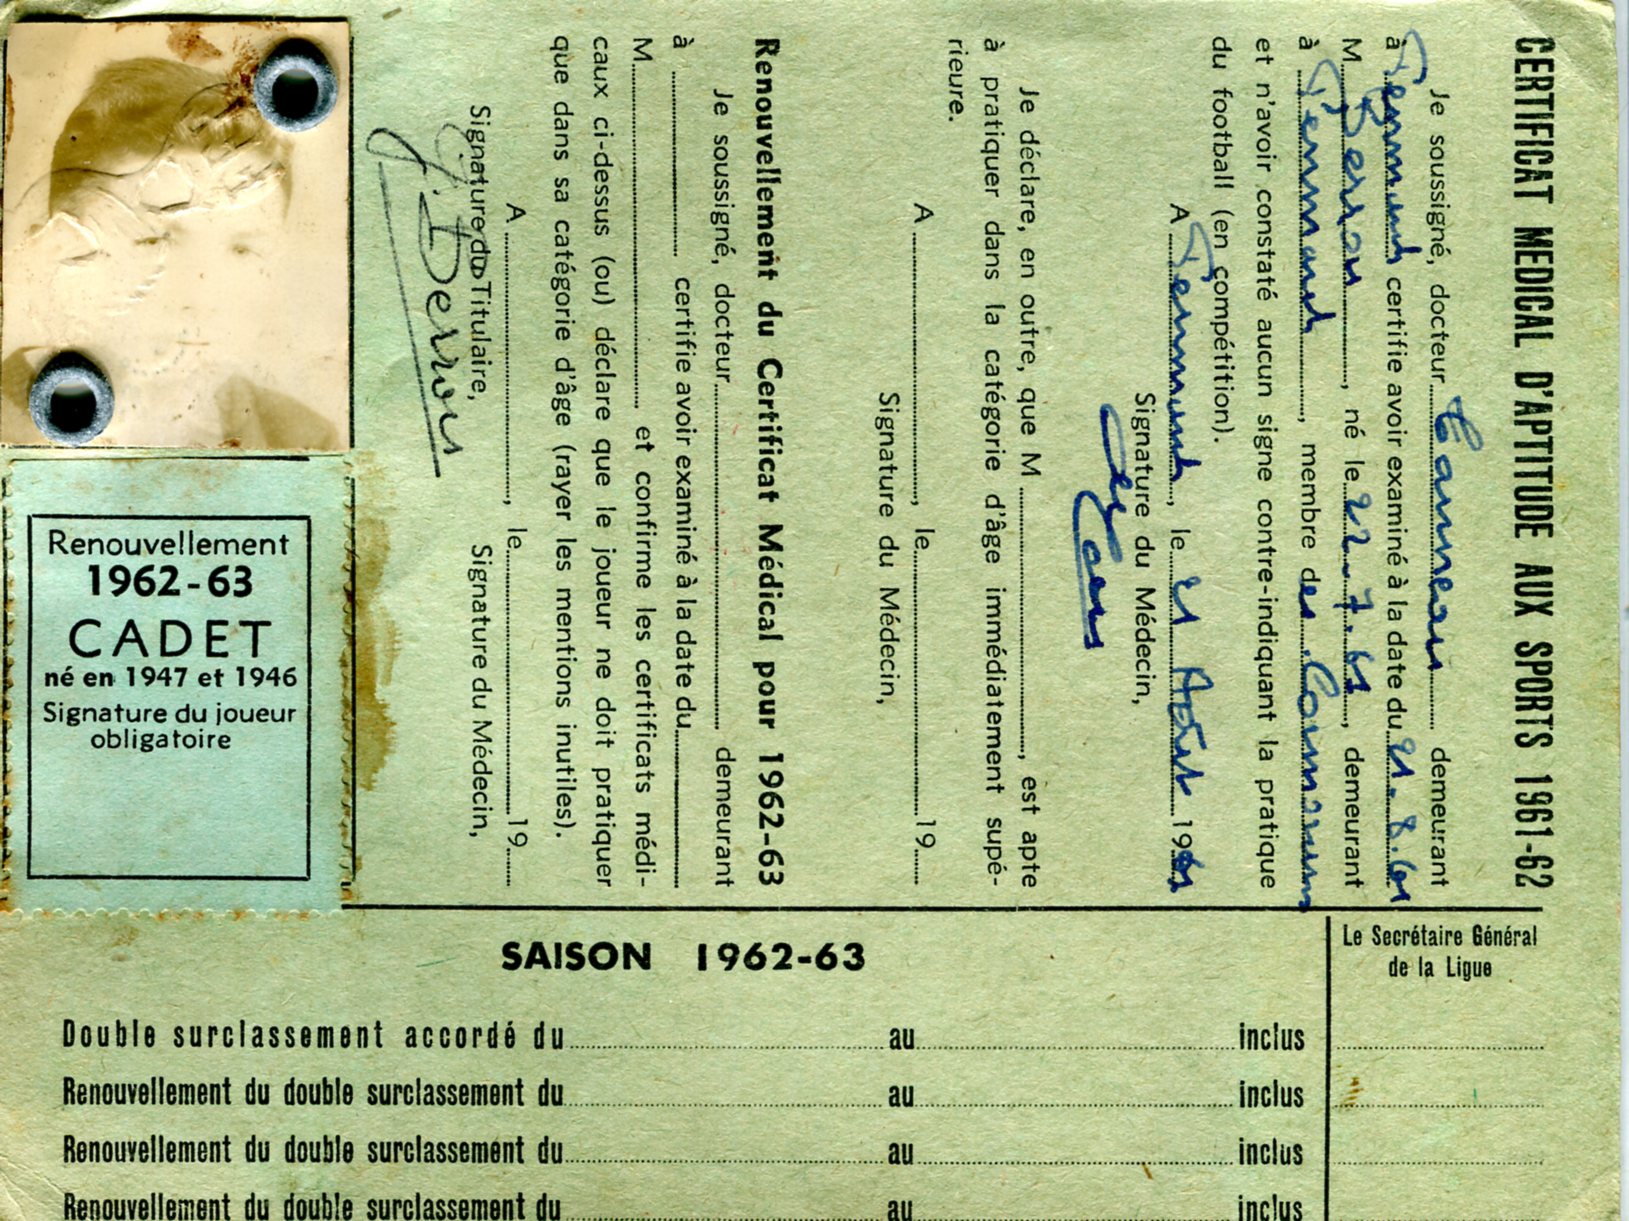 CERTIFICAT MEDICAL D'APTITUDE AUX SPORTS 1961-62
Je soussigné, docteur demeurant
à certifie avoir examiné à la date du 21.8.61
M. Derrou, né le 22.7.61, demeurant
à, membre des
et n'avoir constaté aucun signe contre-indiquant la pratique
du football (en compétition).
A, le 21 Août 1961
Signature du Médecin,
Je déclare, en outre, que M, est apte
à pratiquer dans la catégorie d'âge immédiatement supé-
rieure.
A, le 19
Signature du Médecin,
Renouvellement du Certificat Médical pour 1962-63
Je soussigné, docteur demeurant
à certifie avoir examiné à la date du
M. et confirme les certificats médi-
caux ci-dessus (ou) déclare que le joueur ne doit pratiquer
que dans sa catégorie d'âge (rayer les mentions inutiles).
A, le 19
Signature du Titulaire, Signature du Médecin,
J. Derrou
Renouvellement
1962-63
CADET
né en 1947 et 1946
Signature du joueur
obligatoire
SAISON 1962-63
Le Secrétaire Général
de la Ligue
Double surclassement accordé du au inclus
Renouvellement du double surclassement du au inclus
Renouvellement du double surclassement du au inclus
Renouvellement du double surclassement du au inclus